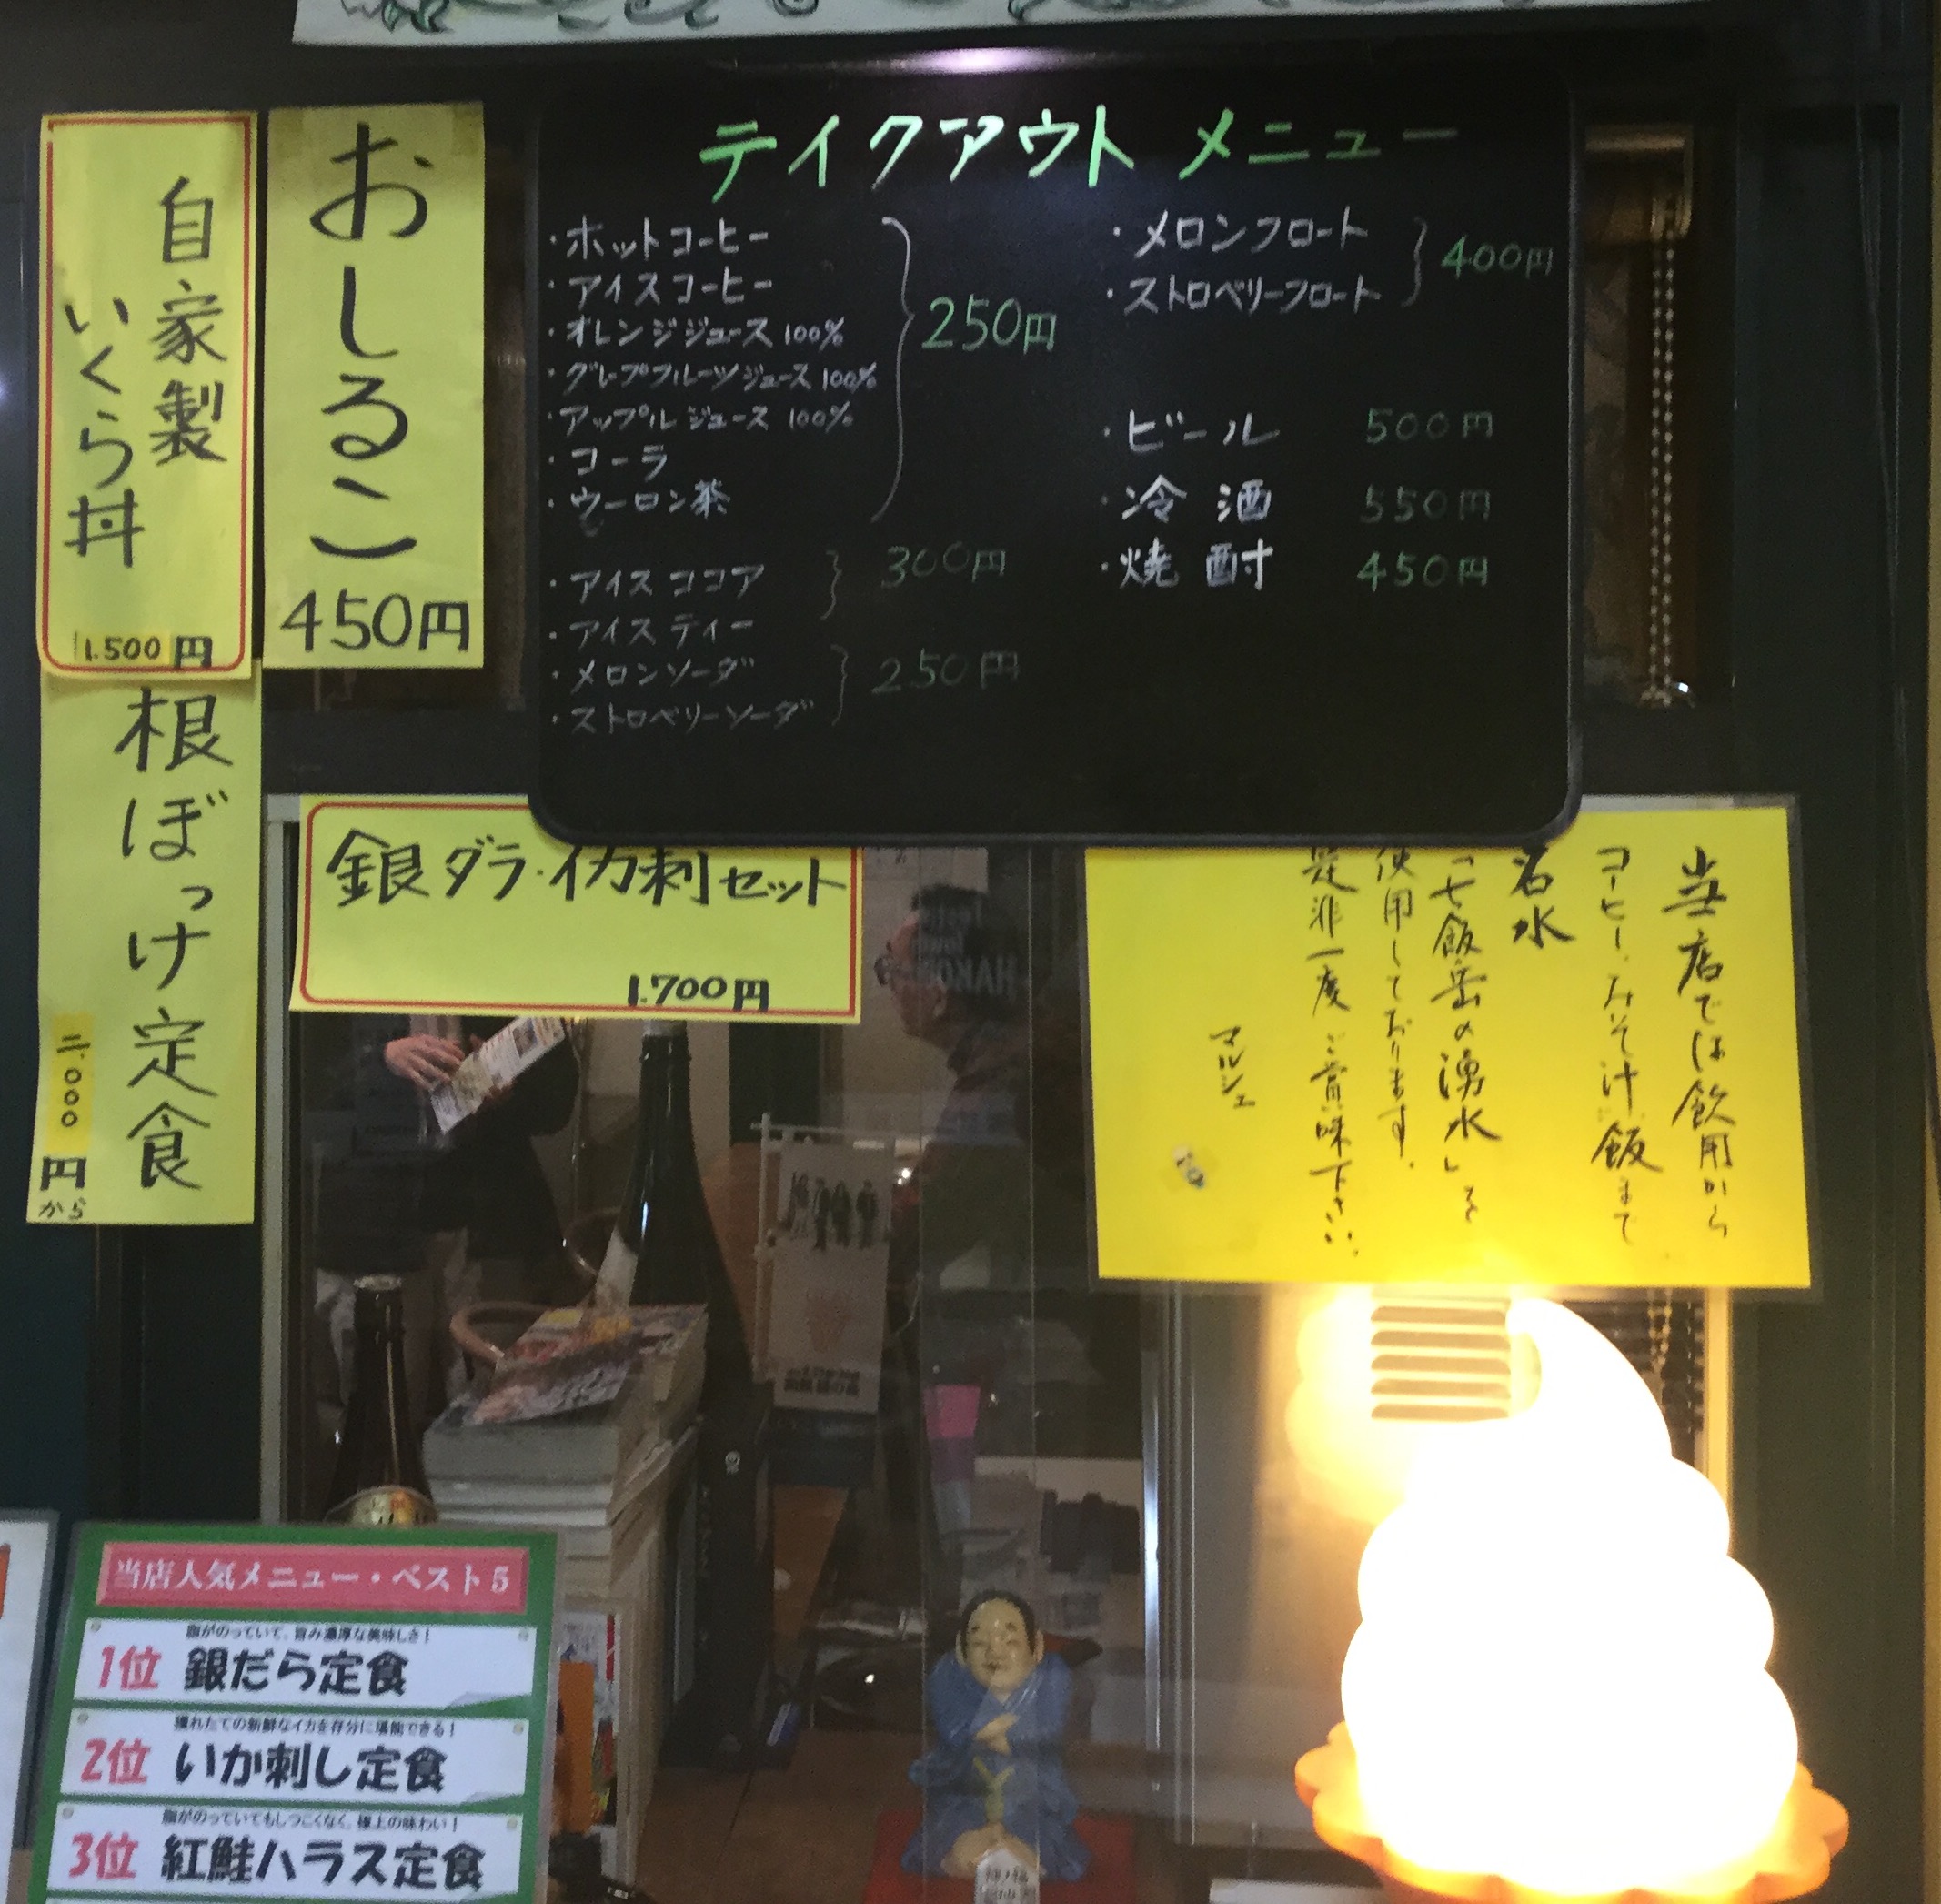 自家製
いくら丼
1.500円
おしるこ
450円
根ぼっけ定食
二.000円から
テイクアウト メニュー
・ホットコーヒー
・アイスコーヒー
・オレンジジュース 100%
・グレープフルーツジュース 100%
・アップルジュース 100%
・コーラ
・ウーロン茶
250円
・アイスココア
・アイスティー
300円
・メロンソーダ
・ストロベリーソーダ
250円
・メロンフロート
・ストロベリーフロート
400円
・ビール 500円
・冷酒 550円
・焼酎 450円
銀ダラ・イカ刺セット
1.700円
当店では飲用から
コーヒー、みそ汁、飯まで
名水
「七飯岳の湧水」を
使用しております。
是非一度ご賞味下さい。
マルシェ
当店人気メニュー・ベスト5
脂がのっていて、旨み濃厚な美味しさ！
1位 銀だら定食
獲れたての新鮮なイカを存分に堪能できる！
2位 いか刺し定食
脂がのっていてもしつこくなく、極上の味わい！
3位 紅鮭ハラス定食